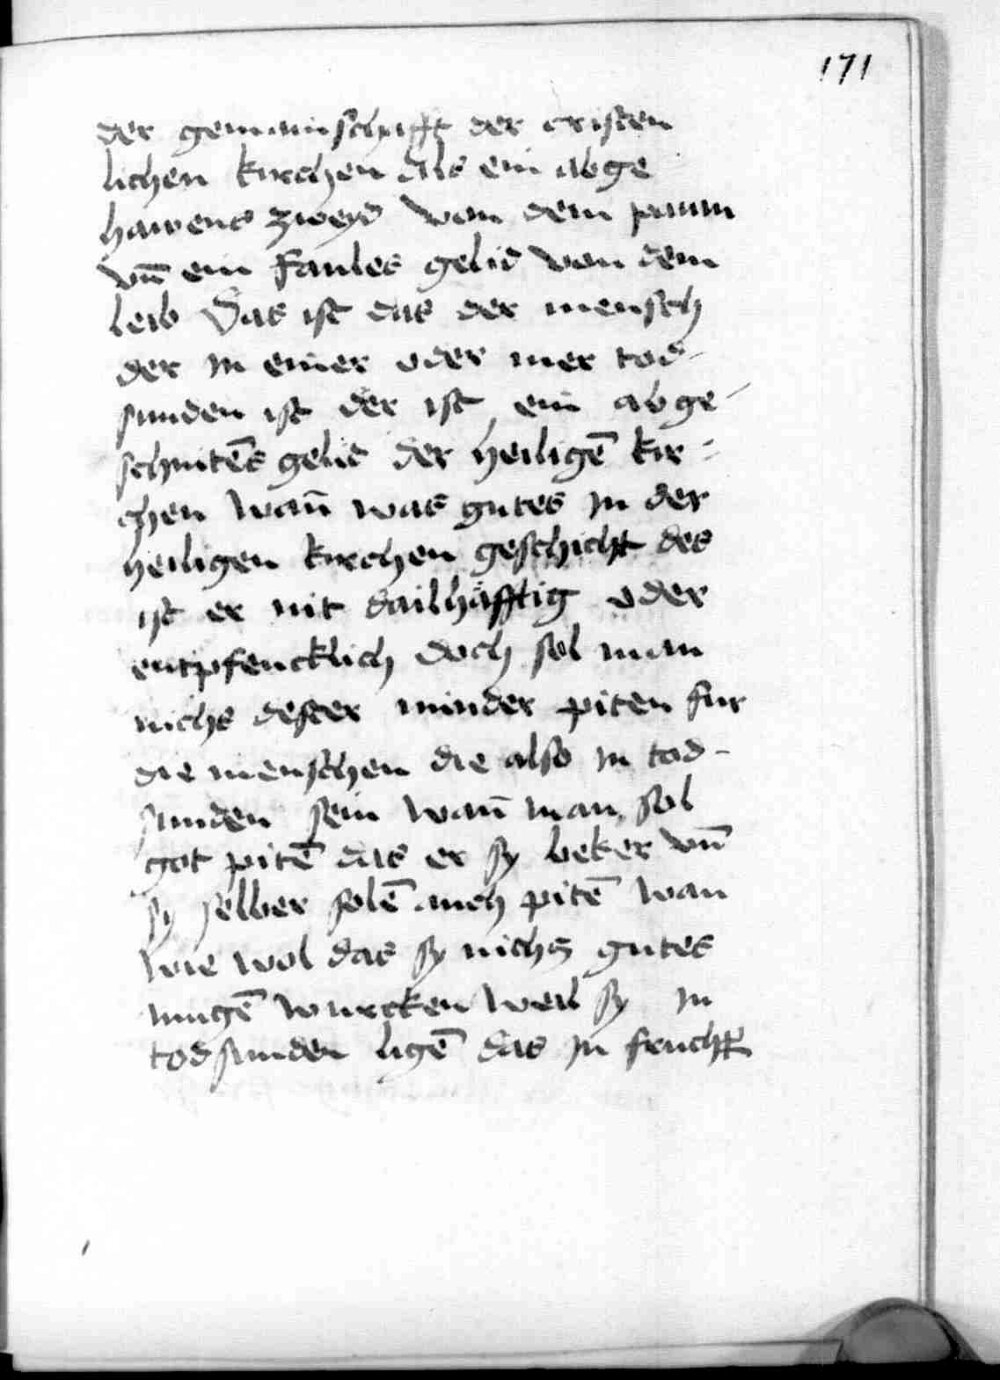 171
der gemainschafft der cristen
lichen kirchen als ein abge
hawens zweyd von dem paum
vn̄ ein faules gelid von dem
leib Das ist das der mensch
der in einer oder mer tod-
sunden ist der ist ein abge-
schnitēs gelid der heiligē kir-
chen wan̄ was gutes in der
heiligen kirchen geschicht des
ist er nit dailhäfftig oder
entpfencklich doch sol man
nichs dester minder piten fur
die menschen die also in tod-
sunden sein wan̄ man sol
got pitē das er sy beker vn̄
sy selber solē auch pitē wan
wie wol das sy nichs gutes
mugē wurcken weil sy in
todsunden ligē das in frucht